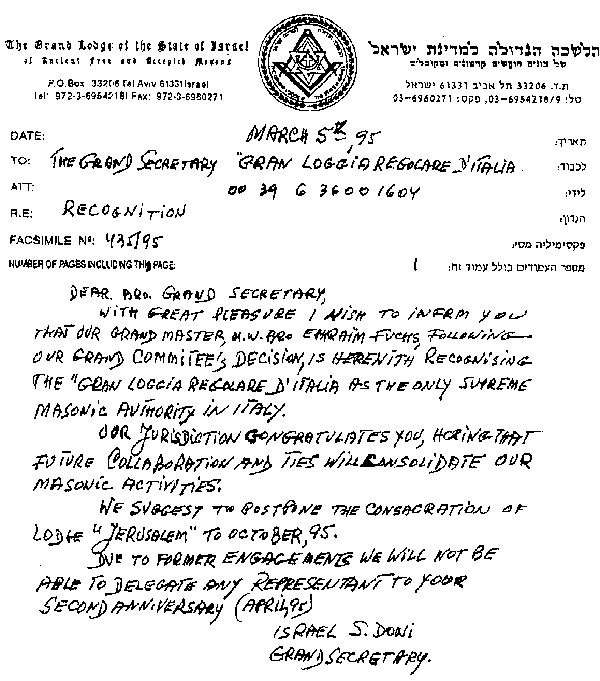 The Grand Lodge of the State of Israel
of Ancient Free and Accepted Masons
P.O.Box 33206 Tel Aviv 61331 Israel
Tel: 972-3-6954218/ Fax: 972-3-6960271
הלשכה הגדולה למדינת ישראל
של בונים חופשים קדמונים ומקובלים
ת.ד. 33206 תל אביב 61331 ישראל
טל: 03-6954218/9, פקס: 03-6960271
DATE: MARCH 5th, 95 תאריך:
TO: THE GRAND SECRETARY "GRAN LOGGIA REGOLARE D'ITALIA לכבוד:
ATT: 00 39 6 3600 1604 לידי:
RE: RECOGNITION הנדון:
FACSIMILE Nº: 435/95 פקסימיליה מס׳:
NUMBER OF PAGES INCLUDING THIS PAGE: 1 מספר העמודים כולל עמוד זה:
DEAR BRO. GRAND SECRETARY,
WITH GREAT PLEASURE I WISH TO INFRM YOU
THAT OUR GRAND MASTER, M.W. BRO EPHRAIM FUCHS, FOLLOWING
OUR GRAND COMMITEE'S DECISION, IS HEREWITH RECOGNISING
THE "GRAN LOGGIA REGOLARE D'ITALIA AS THE ONLY SUPREME
MASONIC AUTHORITY IN ITALY.
OUR JURISDICTION CONGRATULATES YOU, HOPING THAT
FUTURE COLLABORATION AND TIES WILL CONSOLIDATE OUR
MASONIC ACTIVITIES.
WE SUGGEST TO POSTPONE THE CONSACRATION OF
LODGE "JERUSALEM" TO OCTOBER, 95.
DUE TO FORMER ENGAGEMENTS WE WILL NOT BE
ABLE TO DELEGATE ANY REPRESENTANT TO YOUR
SECOND ANNIVERSARY (APRIL, 95)
ISRAEL S. DONI
GRAND SECRETARY.